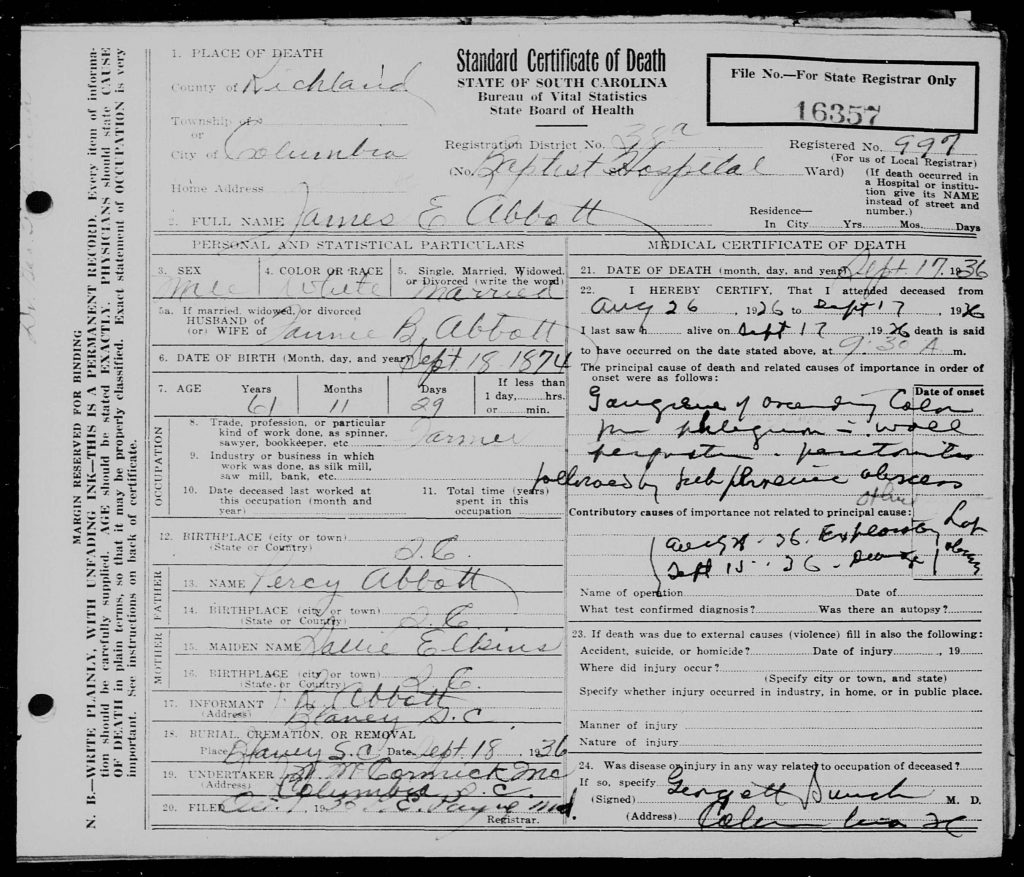 N. B.—WRITE PLAINLY, WITH UNFADING INK—THIS IS A PERMANENT RECORD. Every item of information should be carefully supplied. AGE should be stated EXACTLY. PHYSICIANS should state CAUSE OF DEATH in plain terms, so that it may be properly classified. Exact statement of OCCUPATION is very important. See instructions on back of certificate.
MARGIN RESERVED FOR BINDING
1. PLACE OF DEATH
County of Richland
Township of
or
City of Columbia
Home Address
Standard Certificate of Death
STATE OF SOUTH CAROLINA
Bureau of Vital Statistics
State Board of Health
File No.—For State Registrar Only
16357
Registration District No. 38a
Registered No. 997
(For us of Local Registrar)
(No. Baptist Hospital Ward)
(If death occurred in a Hospital or institution give its NAME instead of street and number.)
2. FULL NAME James E Abbott
Residence—
In City Yrs. Mos. Days
PERSONAL AND STATISTICAL PARTICULARS
3. SEX
4. COLOR OR RACE White
5. Single, Married, Widowed, or Divorced (write the word) Married
5a. If married, widowed, or divorced
HUSBAND of
(or) WIFE of Fannie B. Abbott
6. DATE OF BIRTH (Month, day, and year) Sept 18 1874
7. AGE Years Months Days If less than
61 11 29 1 day, hrs.
or min.
OCCUPATION
8. Trade, profession, or particular kind of work done, as spinner, sawyer, bookkeeper, etc. Farmer
9. Industry or business in which work was done, as silk mill, saw mill, bank, etc.
10. Date deceased last worked at this occupation (month and year)
11. Total time (years) spent in this occupation
12. BIRTHPLACE (city or town)
(State or Country) S.C.
FATHER
13. NAME Percy Abbott
14. BIRTHPLACE (city or town)
(State or Country) S.C.
MOTHER
15. MAIDEN NAME Sallie Elkins
16. BIRTHPLACE (city or town)
(State or Country) S.C.
17. INFORMANT Abbott
(Address) Blaney S.C.
18. BURIAL, CREMATION, OR REMOVAL
Place Blaney S.C. Date Sept. 18, 1936
19. UNDERTAKER McCormick Inc
(Address) Columbia S.C.
20. FILED
Registrar.
MEDICAL CERTIFICATE OF DEATH
21. DATE OF DEATH (month, day, and year) Sept. 17, 1936
22. I HEREBY CERTIFY, That I attended deceased from
Aug 26, 1936 to Sept 17, 1936
I last saw h alive on Sept 17, 1936 death is said
to have occurred on the date stated above, at 9:30 A m.
The principal cause of death and related causes of importance in order of onset were as follows:
Date of onset
Gangrene of ascending Colon
phlegmon wall
peritonitis
followed by subphrenic abscess
other
Contributory causes of importance not related to principal cause:
Aug 36. Exploratory Lap
Sept 15 - 36 -
Name of operation Date of
What test confirmed diagnosis? Was there an autopsy?
23. If death was due to external causes (violence) fill in also the following:
Accident, suicide, or homicide? Date of injury, 19
Where did injury occur?
(Specify city or town, and state)
Specify whether injury occurred in industry, in home, or in public place.
Manner of injury
Nature of injury
24. Was disease or injury in any way related to occupation of deceased?
If so, specify
(Signed) Bunch M. D.
(Address) Columbia SC